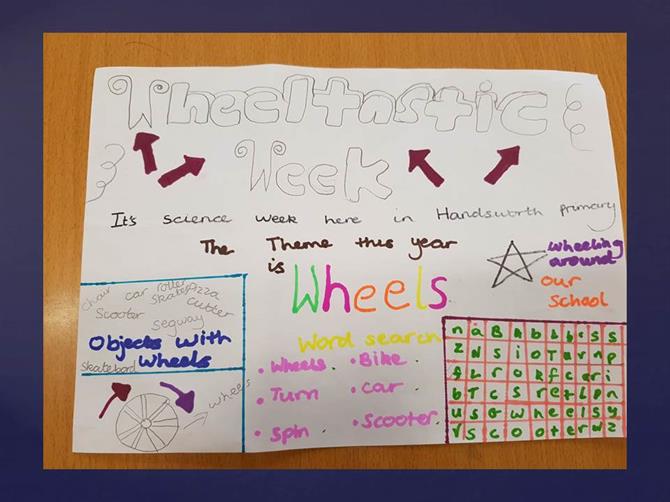 Wheeltastic
Week
It's science week here in Handsworth primary
The Theme this year
is
Wheels
wheeling
around
our
school
chair car roller
skates pizza
cutter
Scooter
segway
Objects with
wheels
Skateboard
wheels
Word search
• Wheels • Bike
• Turn • car
• Spin • Scooter
u s g w h e e l s y
v s c o o t e r w z